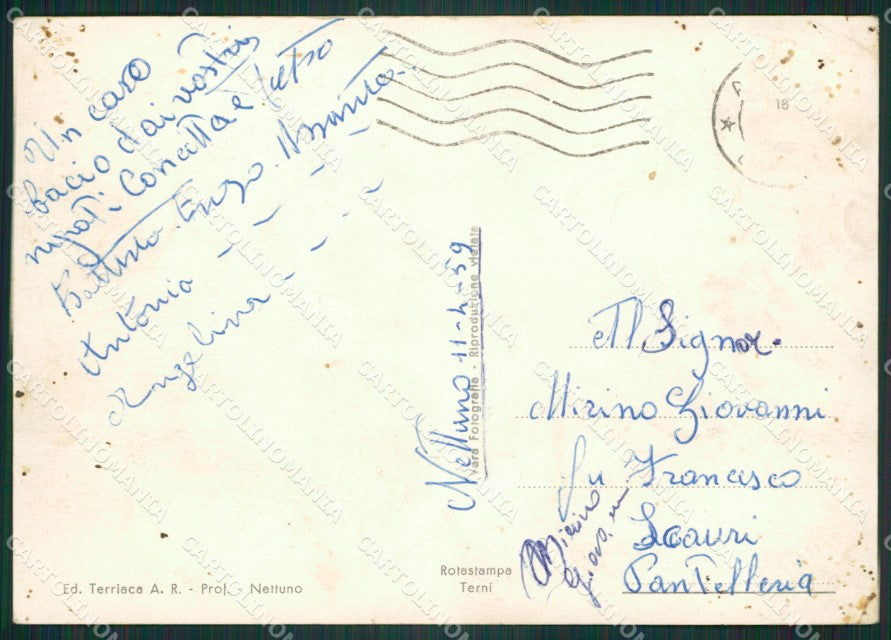 Un caro
bacio dai vostri
nipoti. Concetta e Pietro
Battista. Enzo. Nunzia
Antonia
Angelina
Nettuno 11-4-59
Vera Fotografia - Riproduzione vietata
18
Al Signor.
Mirino Giovanni
fu Francesco
Scauri
Pantelleria
Mirino
Giov.
Rotastampa
Terni
Ed. Terriaca A. R. - Prof. - Nettuno
CARTOLINOMANIA